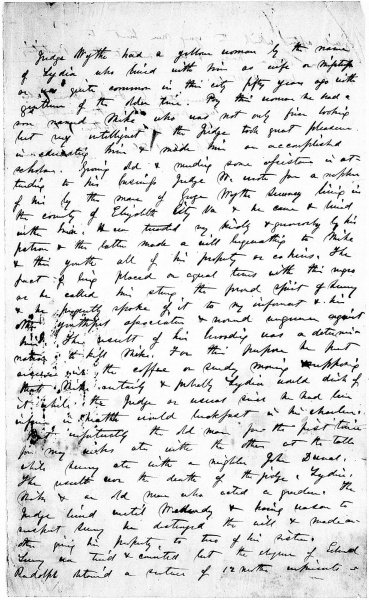 Judge Wythe had a yellow woman by the name
of Lydia who lived with him as wife or mistress
as was quite common in this city fifty years ago with
gentlemen of the older time. By this woman he had a
son named Mike who was not only fine looking
but very intelligent & the Judge took great pleasure
in educating him & made him an accomplished
scholar. Growing old & needing some assistance in at-
tending to his business Judge W. wrote for a nephew
of his by the name of Wythe Sweeney living in
the county of Elizabeth City Va & he came & lived
with him. He was treated very kindly & generously by his
patron & the latter made a will bequeathing to Mike
& this youth all of his property as co heirs. The
fact of being placed on equal terms with this negro
as he called him stung the proud spirit of Sweeney
& he frequently spoke of it to my informant & his
other youthful associates & vowed vengeance against
him. The result of his brooding was a determi-
nation to kill Mike. For this purpose he put
arsenic in the coffee on Sunday morning supposing
that Mike certainly & probably Lydia would drink of
it while the Judge as usual since he had been
infirm in health would breakfast in his chamber.
But unfortunately the old man for the first time
for many weeks ate with the others at the table
while Sweeney ate with a neighbor Duval.
The result was the death of the judge, Lydia,
Mike & an old man who acted as gardener. The
Judge lived until Wednesday & having reason to
suspect Sweeney he destroyed the will & made an-
other giving his property to two of his sisters.
Sweeney was tried & convicted but the eloquence of Edmund
Randolph obtained a sentence of 12 months